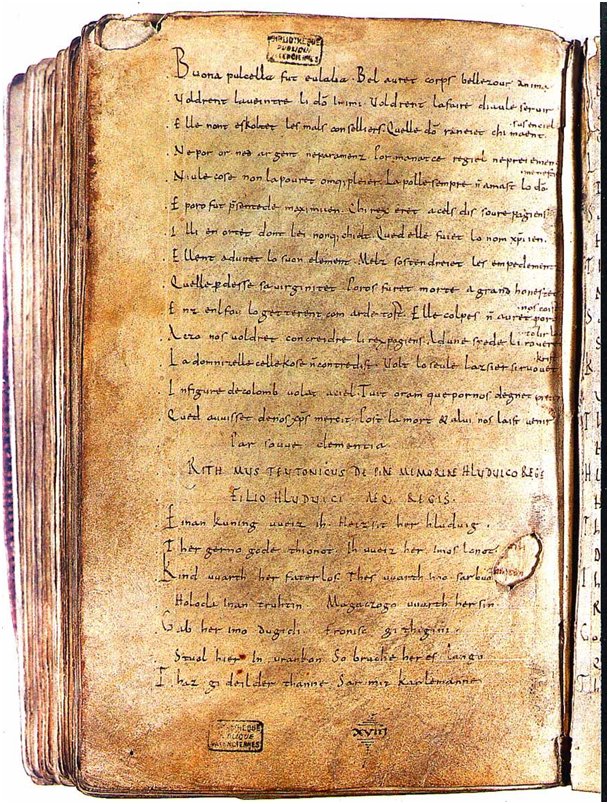 BIBLIOTHEQUE
PUBLIQUE
VALENCIENNES
Buona pulcella fut eulalia. Bel auret corps bellezour anima
Voldrent la ueintre li dō Inimi. Voldrent la faire diaule seruir
Elle nont eskoltet les mals conselliers. Quelle dō raneiet chi maent sus en ciel
Ne por or ned argent ne paramenz. Por manatce regiel ne preiement
Niule cose non la pouret omq pleier. La polle sempre n amast lo dō menestier
E poro fut psentede maximiien. Chi rex eret a cels dis soure pagiens
Illi en ortet dont lei nonq chielt. Qued elle fuiet lo nom xpiien.
Ellent adunet lo suon element. Melz sostendreiet les empedementz
Quelle pdesse sa uirginitet. Poros furet morte a grand honestet
Enz enl fou lo getterent com arde tost. Elle colpes n auret por o nos coist
Aczo nos voldret concreidre li rex pagiens. Ad une spede li roueret tolir lo
La domnizelle celle kose n contredist. Volt lo seule lazsier si ruouet krist
In figure de colomb uolat a ciel. Tuit oram que por nos degnet preier
Qued auuisset de nos xps mercit. Post la mort & a lui nos laist uenir
Par souue clementia.
RITHMUS TEUTONICUS DE PIAE MEMORIAE HLUDUICO REGE
FILIO HLUDUICI AEQ; REGIS.
Einan kuning uueiz ih. Heizsit her hluduig.
Ther gerno gode thionot. Ih uueiz her imos lonot.
Kind uuarth her faterlos. Thes uuarth imo sar buoz
Holoda Inan truhtin Magaczogo uuarth her sin
Gab her imo dugidi fronisc githigini.
Stuol hier In urankon So bruche her es lango
Thaz gideilder thanne Sar mit karlemanne
BIBLIOTHEQUE
PUBLIQUE
VALENCIENNES
XVIII